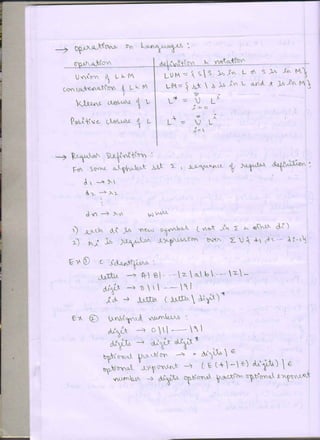 → operations on Languages :
operation definition & notation
Union of L & M L∪M = { s | s is in L or s is in M }
Concatenation of L & M LM = { st | s is in L and t is in M }
Kleene closure of L L* = ∪ Lⁱ
i=0
Positive closure of L L⁺ = ∪ Lⁱ
i=1
→ Regular Definition :
For some alphabet set Σ, sequence of regular definition :
d1 → r1
d2 → r2
dn → rn where
1) each di is new symbol (not in Σ & other di)
2) ri is regular expression over Σ ∪ { d1, d2 - di-1 }
Ex ① C identifiers :
letter → A|B| --- |z|a|b| --- |z|_
digit → 0|1| --- |9|
id → letter (letter | digit)*
Ex ② Unsigned numbers :
digit → 0|1| --- |9|
digits → digit digit*
optional fraction → . digits | ε
optional exponent → (E (+|-|ε) digits) | ε
number → digits optional fraction optional exponent